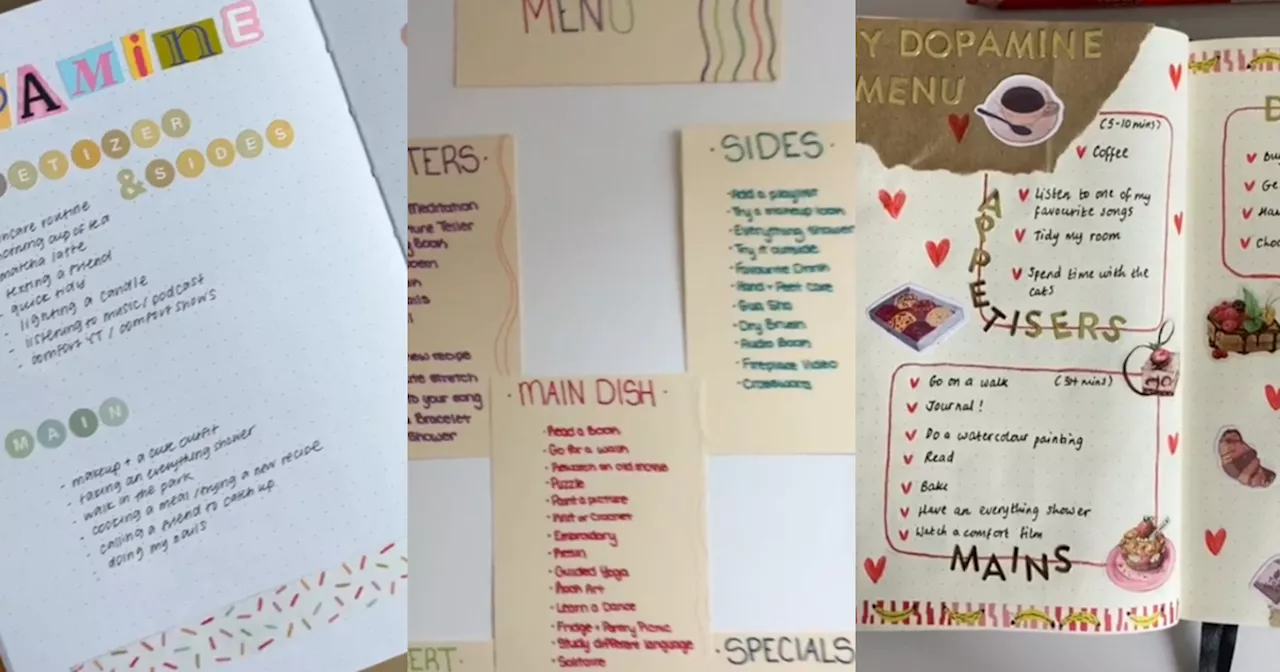 AMiNE
ETIZER
& SIDES
morning cup of tea
matcha latte
- texting a friend
- quick tidy
- lighting a candle
- listening to music/podcast
- comfort YT / comfort shows
MAIN
- makeup + a cute outfit
- taking an everything shower
- walk in the park
- cooking a meal/trying a new recipe
- calling a friend to catch up
- doing my nails
MENU
TERS·
Meditation
Teller
Book
new recipe
stretch
to your song
Bracelet
Shower
·SIDES·
-Add a playlist
-Everything shower
-Try it outside
-Favourite Drink
-Hand + Feet Care
-Gua Sha
-Dry Brush
-Audio Book
-Fireplace Video
-Crosswords
·MAIN DISH·
-Read a Book
-Go for a walk
-Rewatch an old movie
-Puzzle
-Paint a picture
-Knit or Crochet
-Embroidery
-Resin
-Guided Yoga
-Learn a Dance
-Fridge + Pantry Picnic
-Study different language
-Solitaire
ERT·
·SPECIALS
Y DOPAMINE
MENU
(5-10 mins)
Coffee
Listen to one of my
favourite songs
Tidy my room
Spend time with the
cats
APPETISERS
Go on a walk (30+ mins)
Journal!
Do a watercolour painting
Read
Bake
Have an everything shower
Watch a comfort film
MAINS
D
Bu
Ge
Ha
Choc